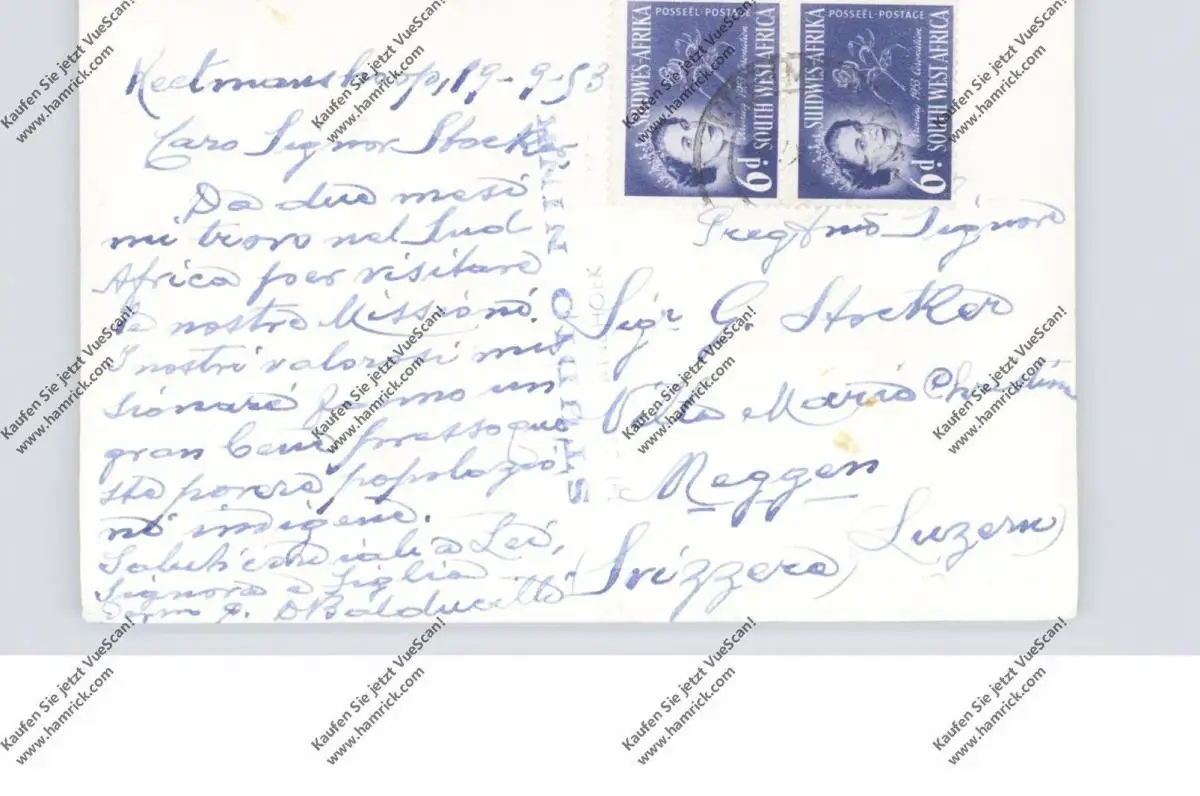 Keetmanshoop, 19-9-53
Caro Signor Stocker,
Da due mesi
mi trovo nel Sud
Africa per visitare
le nostre Missioni.
I nostri valorosi mis
sionari fanno un
gran bene presso que
ste povere popolazio
ni indigene.
Saluti cordiali a Lei,
Signora e Figlia
P. D Balducelli
SUIDWES-AFRIKA
POSSEËL·POSTAGE
Kroning 1953 Coronation
SOUTH WEST AFRICA
6d
SUIDWES-AFRIKA
POSSEËL·POSTAGE
Kroning 1953 Coronation
SOUTH WEST AFRICA
6d
Signore
Sigr G. Stocker
Villa Maria
Meggen
(Luzern)
(Svizzera)
Kaufen Sie jetzt VueScan!
www.hamrick.com
Kaufen Sie jetzt VueScan!
www.hamrick.com
Kaufen Sie jetzt VueScan!
www.hamrick.com
Kaufen Sie jetzt VueScan!
www.hamrick.com
Kaufen Sie jetzt VueScan!
www.hamrick.com
Kaufen Sie jetzt VueScan!
www.hamrick.com
Kaufen Sie jetzt VueScan!
www.hamrick.com
Kaufen Sie jetzt VueScan!
www.hamrick.com
Kaufen Sie jetzt VueScan!
www.hamrick.com
Kaufen Sie jetzt VueScan!
www.hamrick.com
Kaufen Sie jetzt VueScan!
www.hamrick.com
Kaufen Sie jetzt VueScan!
www.hamrick.com